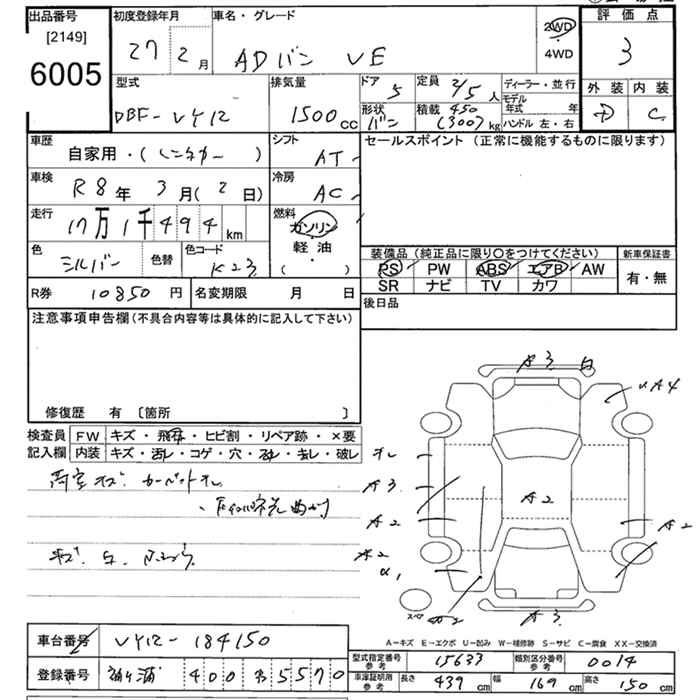 出品番号
[2149]
6005
初度登録年月
27 2月
車名・グレード
ADバン VE
2WD
4WD
評価点
3
外装 内装
D C
型式
DBF-VY12
排気量
1500cc
ドア 5
定員 2/5人
ディーラー・並行
モデル年式 年
形状 バン
積載 450(300)kg
ハンドル 左・右
車歴
自家用・( )
シフト
AT
セールスポイント(正常に機能するものに限ります)
車検
R8年 3月(2日)
冷房
AC
走行
17万1千494km
燃料
ガソリン
軽油
( )
色
シルバー
色替
色コード
K23
装備品(純正品に限り○をつけてください)
PS PW ABS エアB AW
SR ナビ TV カワ
新車保証書
有・無
R券 10850円
名変期限 月 日
後日品
注意事項申告欄(不具合内容等は具体的に記入して下さい)
修復歴 有 〔箇所 〕
検査員記入欄
FW キズ・飛石・ヒビ割・リペア跡・×要
内装 キズ・汚レ・コゲ・穴・・キレ・破レ
A3
A4
A3
A2
A2
A2
A2
A3
スペア
A-キズ E-エクボ U-凹み W-補修跡 S-サビ C-腐食 XX-交換済
車台番号 VY12-184150
登録番号 袖ヶ浦 400 5570
型式指定番号 参考 15633
類別区分番号 参考 0014
車庫証明用 参考 長さ 439cm 幅 169cm 高さ 150cm